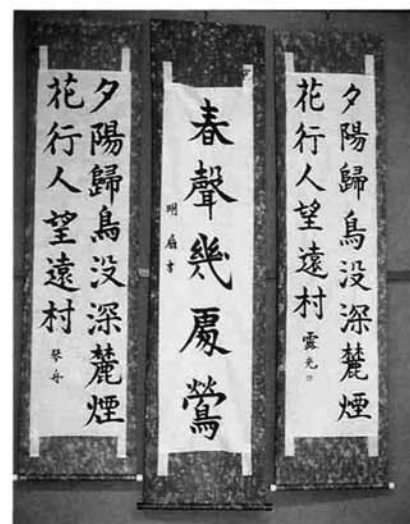 夕陽歸鳥没深麓煙
花行人望遠村
露光
春聲幾處鶯
明扇書
夕陽歸鳥没深麓煙
花行人望遠村
琴舟